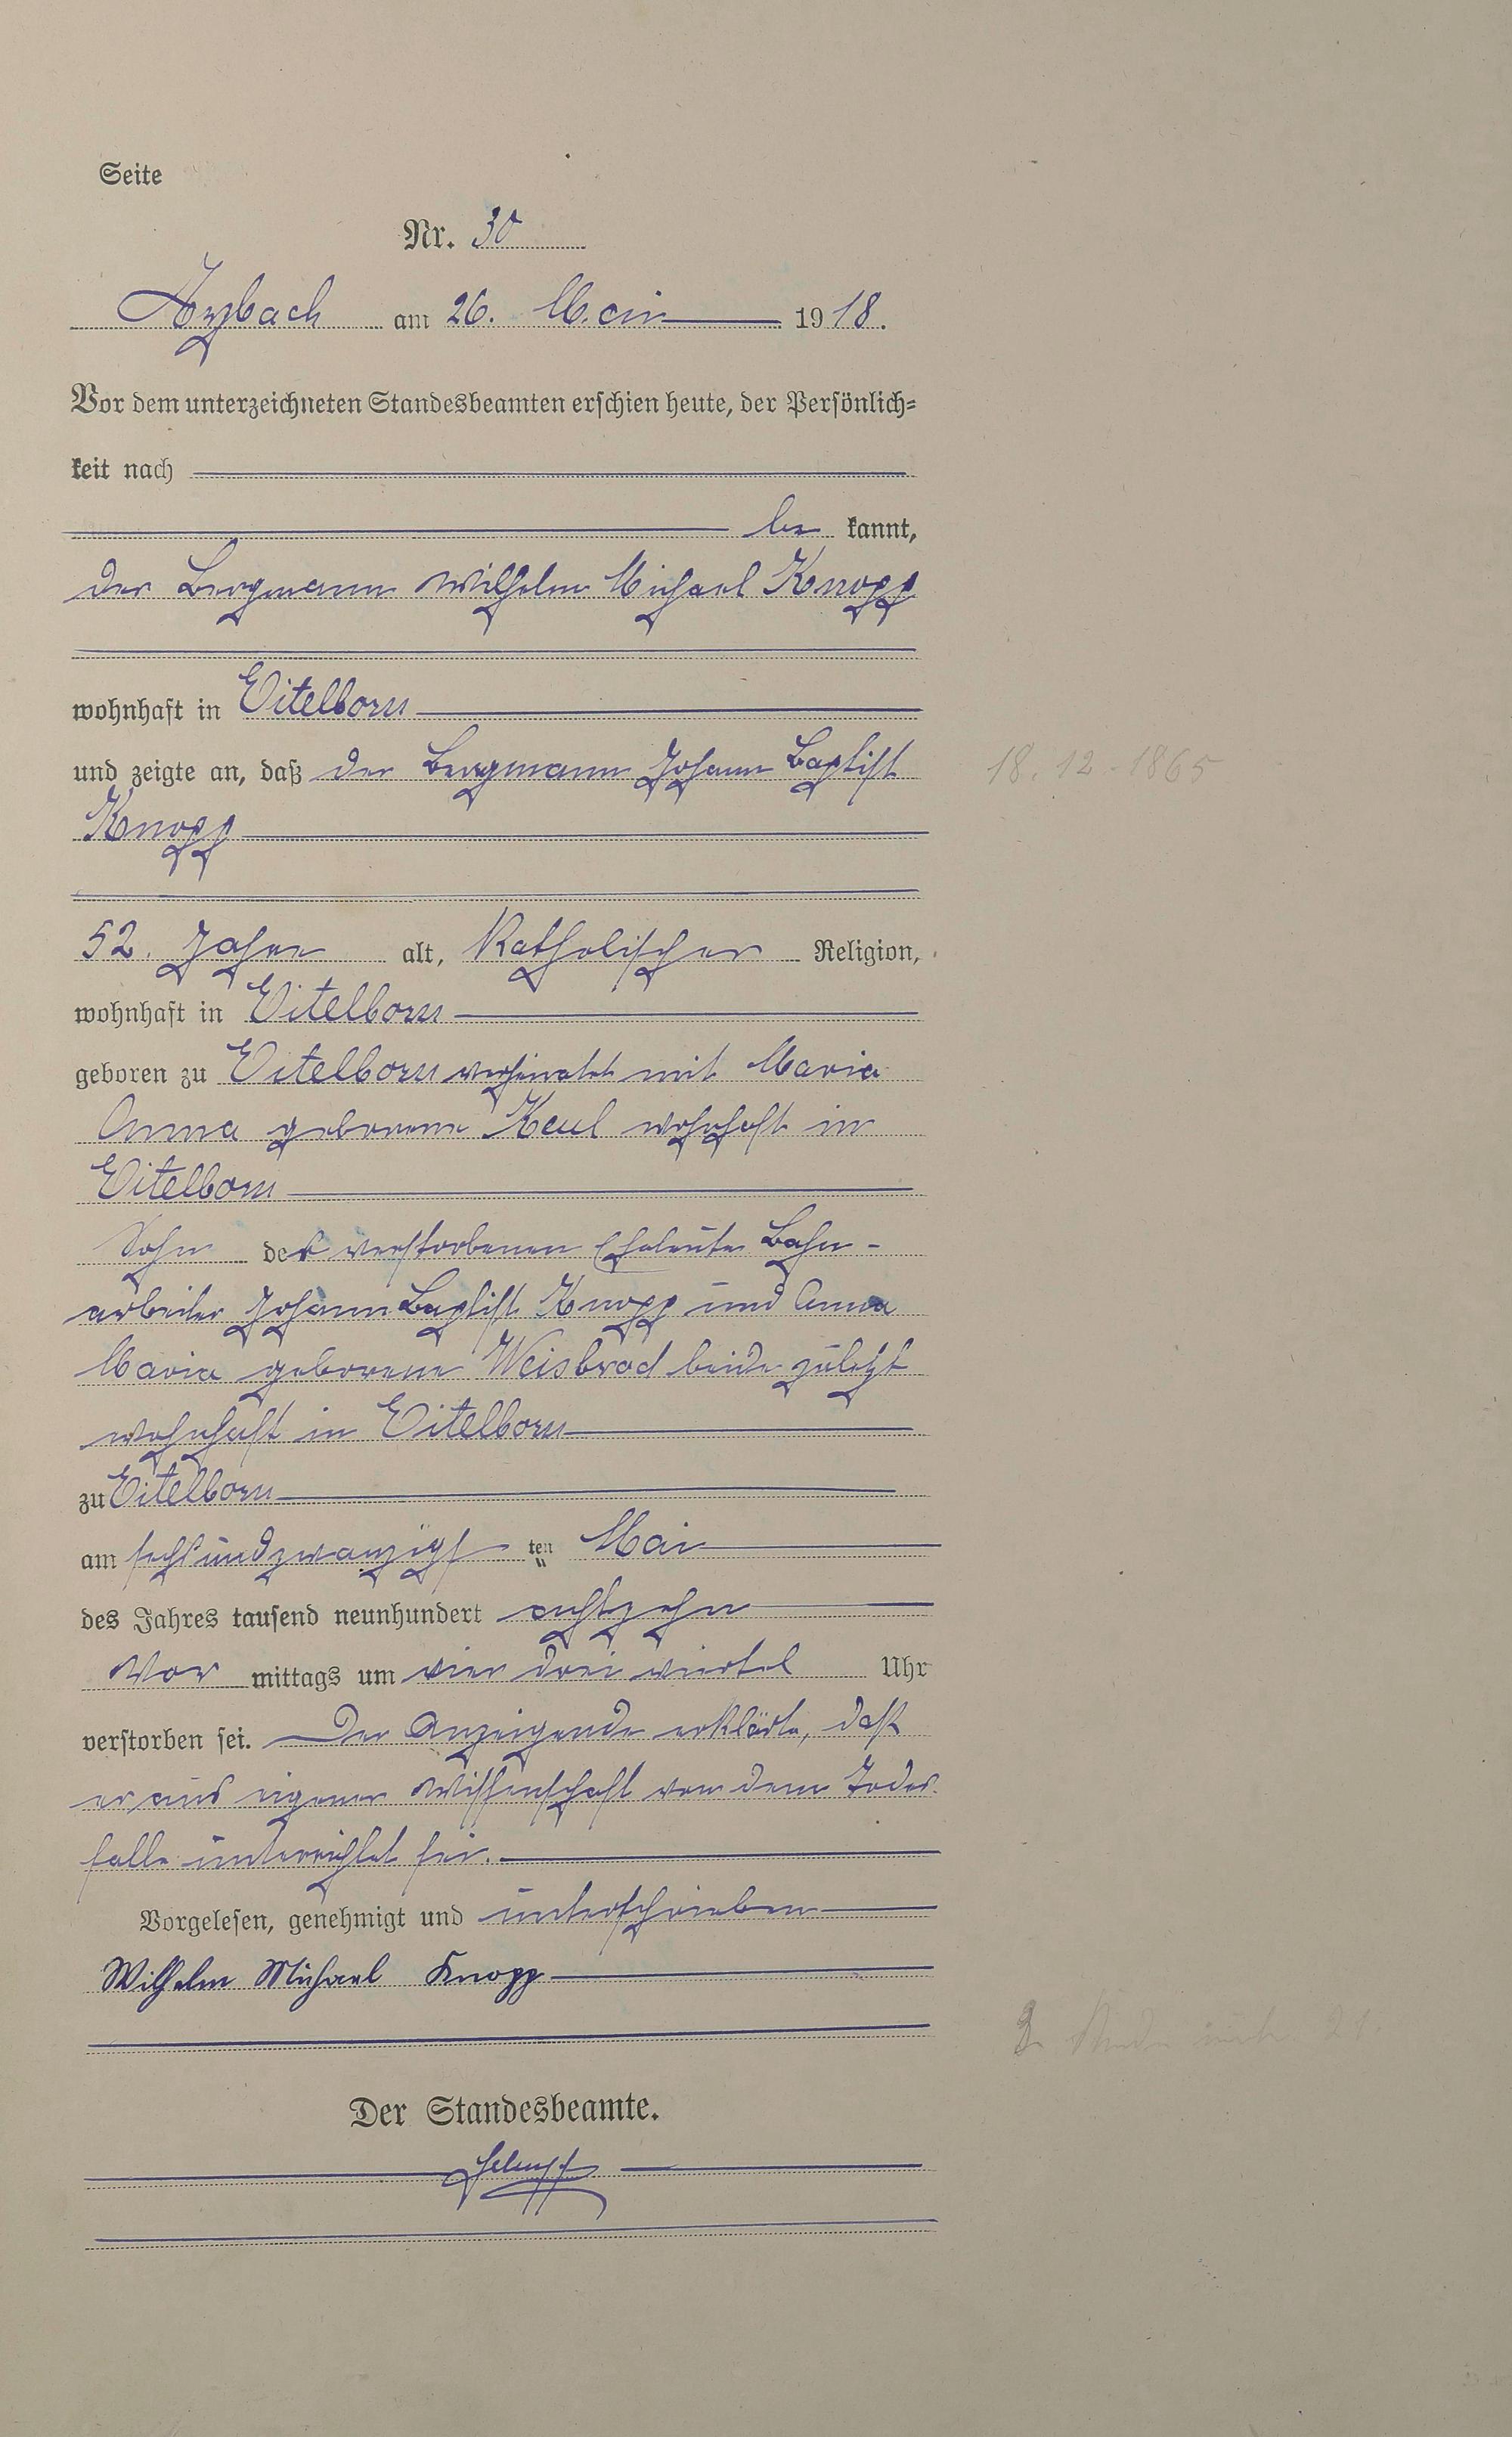 Seite
Nr. 30
Arzbach am 26. Mai 1918.
Vor dem unterzeichneten Standesbeamten erschien heute, der Persönlich-
keit nach
be kannt,
der Bergmann Wilhelm Michael Knopp
wohnhaft in Eitelborn
und zeigte an, daß der Bergmann Johann Baptist
18.12.1865
Knopp
52. Jahre alt, Katholischer Religion,
wohnhaft in Eitelborn
geboren zu Eitelborn verheiratet mit Maria
Anna geborene Keul wohnhaft in
Eitelborn
Sohn der verstorbenen Eheleute Bahn-
arbeiter Johann Baptist Knopp und Anna
Maria geborene Weisbrod beide zuletzt
wohnhaft in Eitelborn
zu Eitelborn
am sechsundzwanzigs ten Mai
des Jahres tausend neunhundert achtzehn
Vor mittags um vier drei viertel Uhr
verstorben sei. Der Anzeigende erklärte, daß
er aus eigener Wissenschaft von dem Todes-
falle unterrichtet sei.
Vorgelesen, genehmigt und unterschrieben
Wilhelm Michael Knopp
Der Standesbeamte.